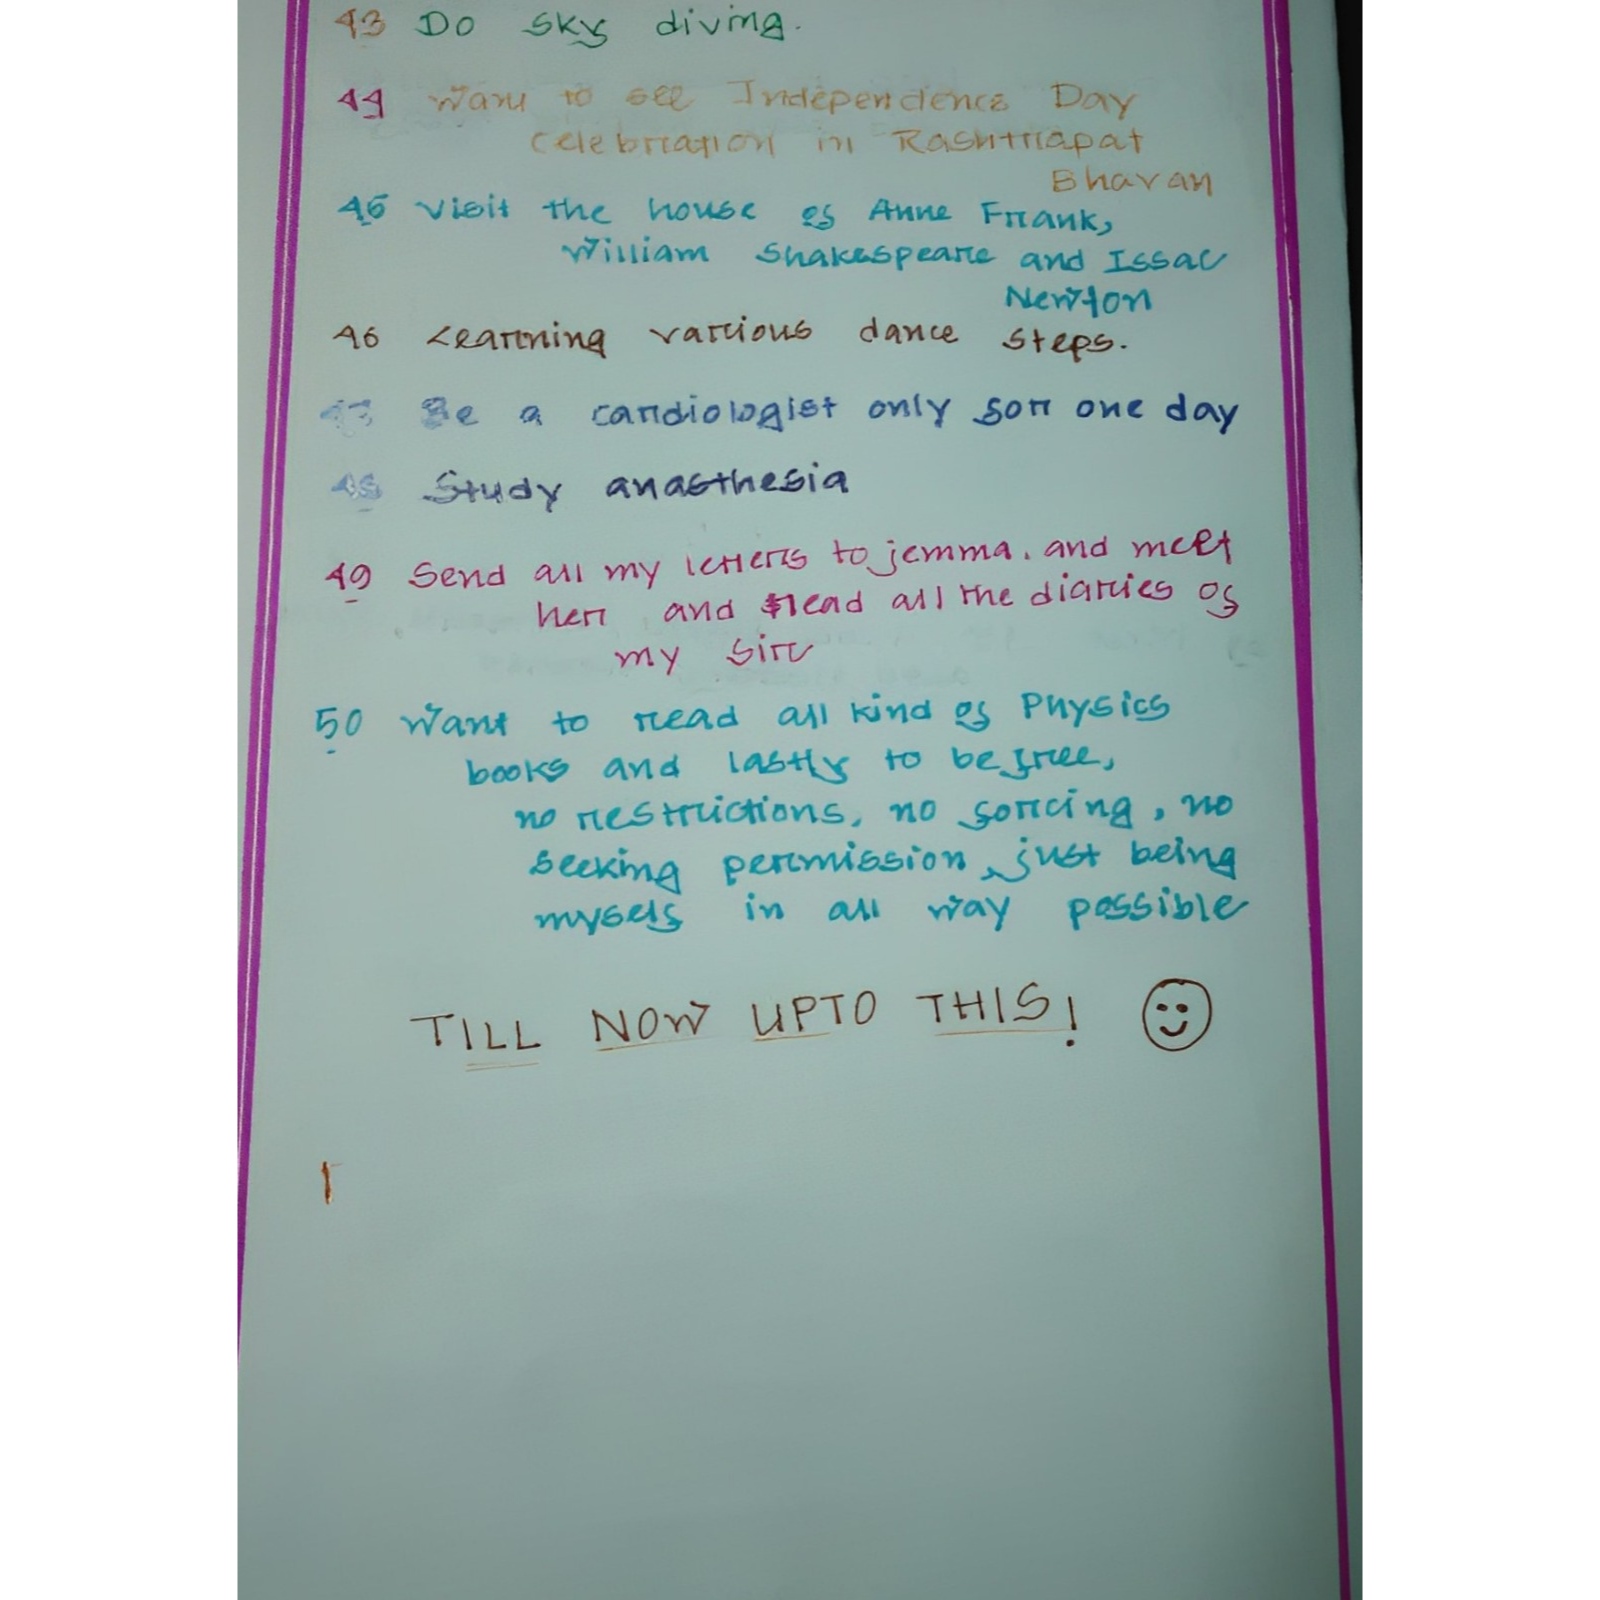 43 Do sky diving.
44 Want to see Independence Day
celebration in Rashtriapat
Bhavan
45 Visit the house of Anne Frank,
William Shakespeare and Issac
Newton
46 Learning various dance steps.
47 Be a cardiologist only for one day
48 Study anasthesia
49 Send all my letters to jemma. and meet
her and read all the diaries of
my sir
50 Want to read all kind of Physics
books and lastly to be free,
no restrictions, no forcing, no
seeking permission, just being
myself in all way possible
TILL NOW UPTO THIS!